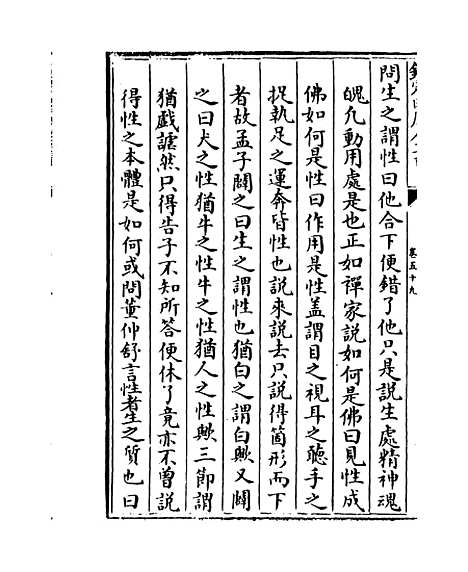 卷五十九
問生之謂性曰他合下便錯了他只是說生處精神魂
魄凡動用處是也正如禪家說如何是佛曰見性成
佛如何是性曰作用是性盖謂目之視耳之聽手之
捉執足之運奔皆性也說來說去只說得箇形而下
者故孟子闢之曰生之謂性也猶白之謂白歟又闢
之曰犬之性猶牛之性牛之性猶人之性歟三節謂
猶戲謔然只得告子不知所答便休了竟亦不曾說
得性之本體是如何或問董仲舒言性者生之質也曰